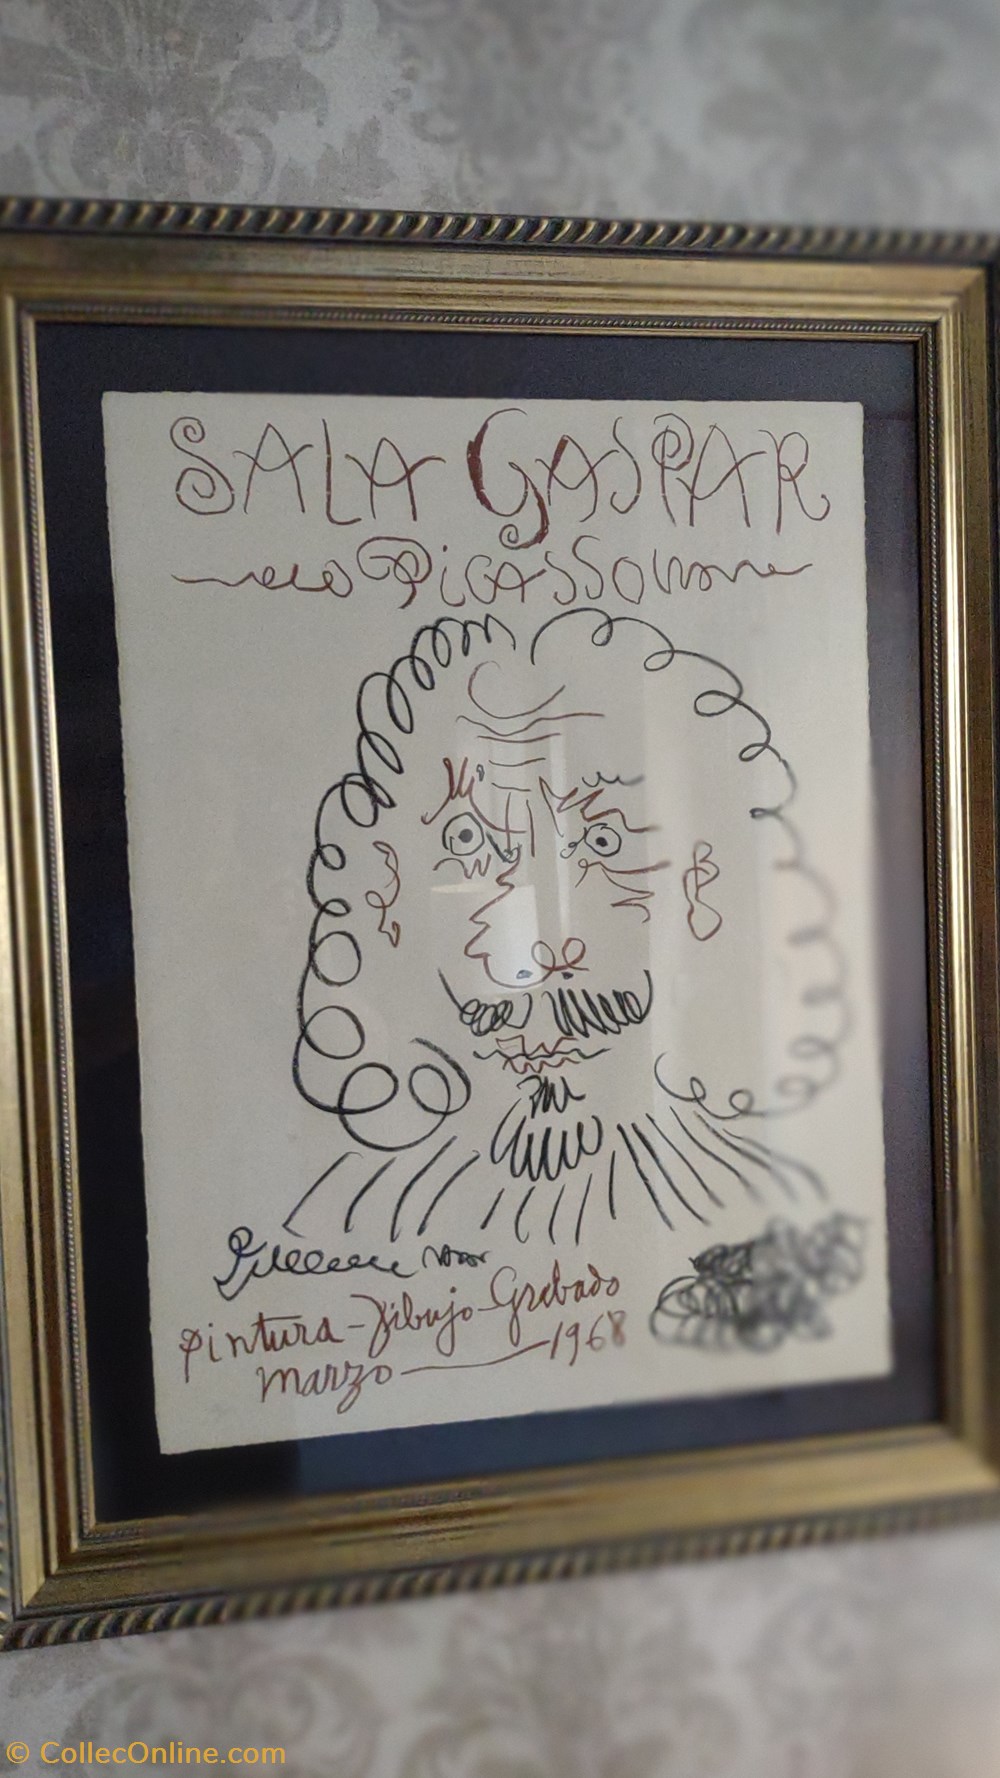 SALA GASPAR
Picasso
Pintura-Dibujo-Grabado
marzo — 1968
© CollecOnline.com